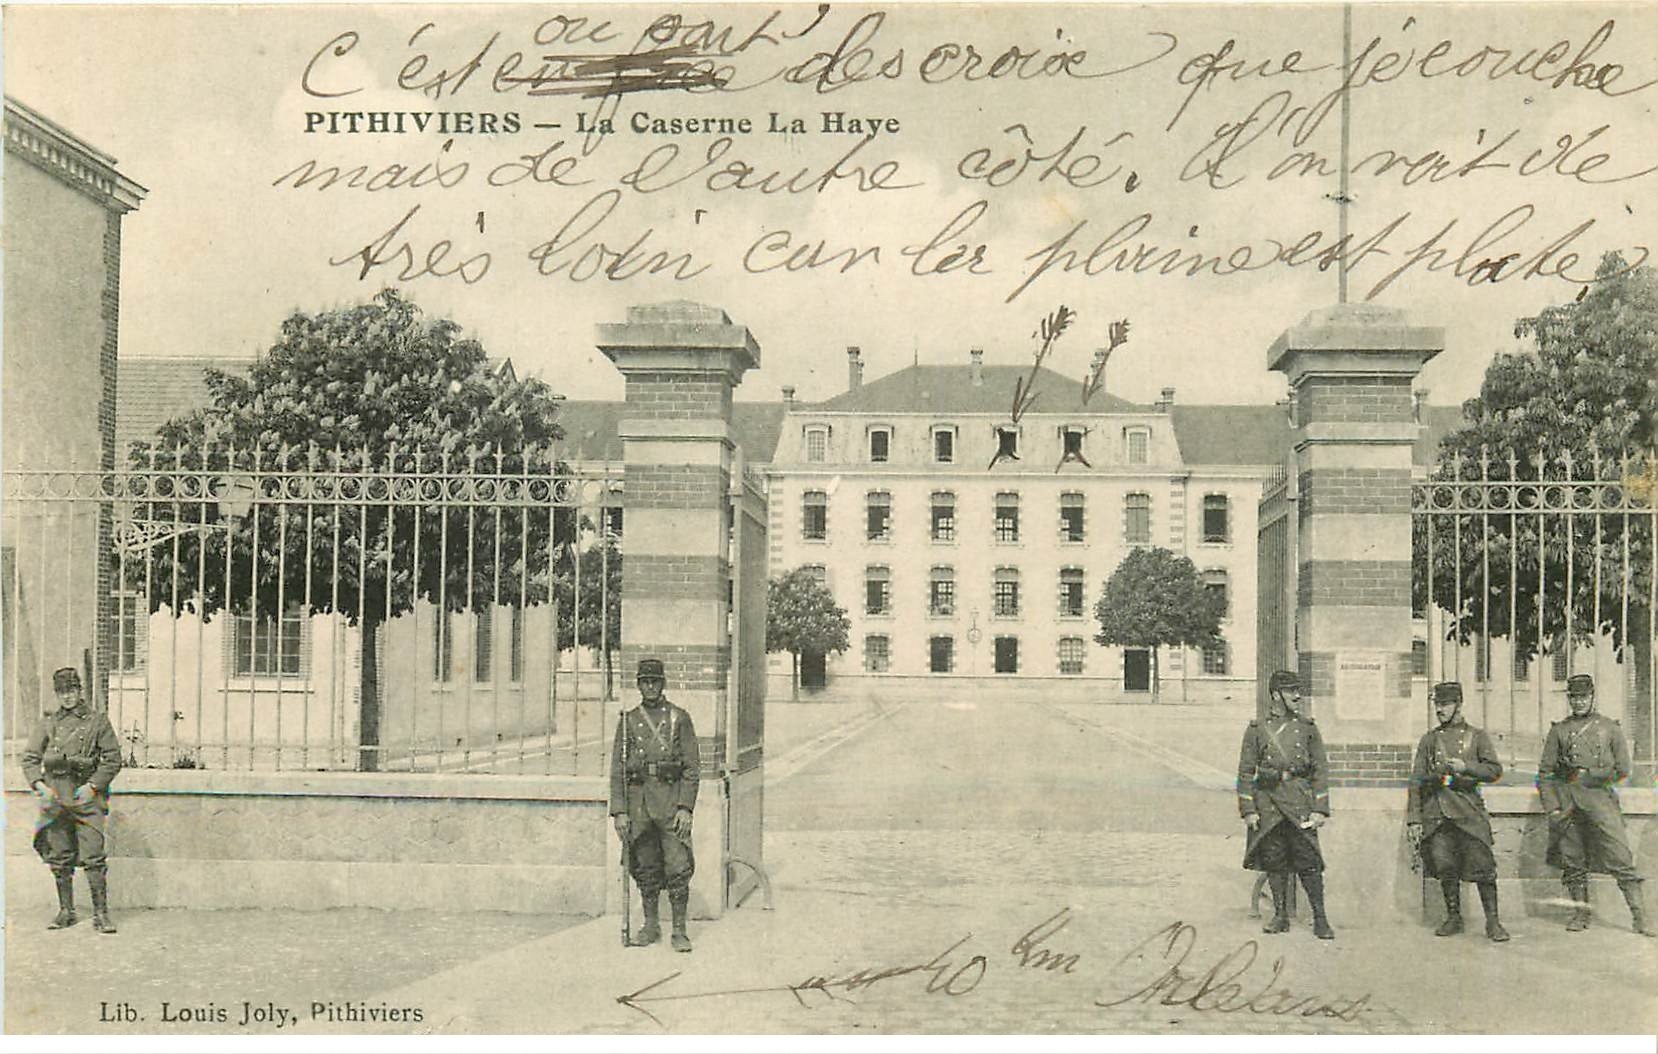 ou part
C'est des croix que je couche
PITHIVIERS — La Caserne La Haye
mais de l'autre côté. L'on voit de
très loin car la plaine est plate
40 km Orléans
Lib. Louis Joly, Pithiviers